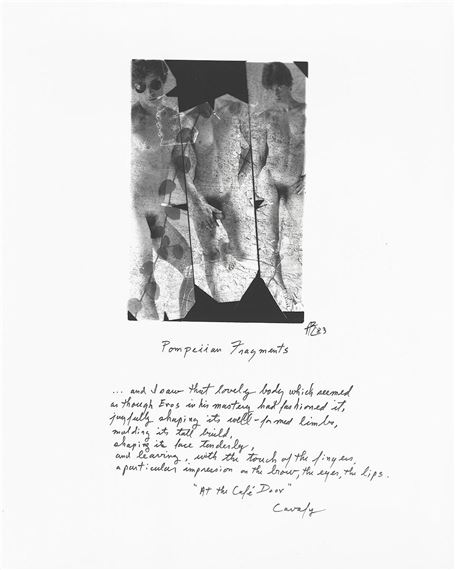 83
Pompeiian Fragments
... and I saw that lovely body which seemed
as though Eros in his mastery had fashioned it,
joyfully shaping its well-formed limbs,
molding its tall build,
shaping its face tenderly,
and leaving, with the touch of the fingers,
a particular impression on the brow, the eyes, the lips.
"At the Café Door"
Cavafy